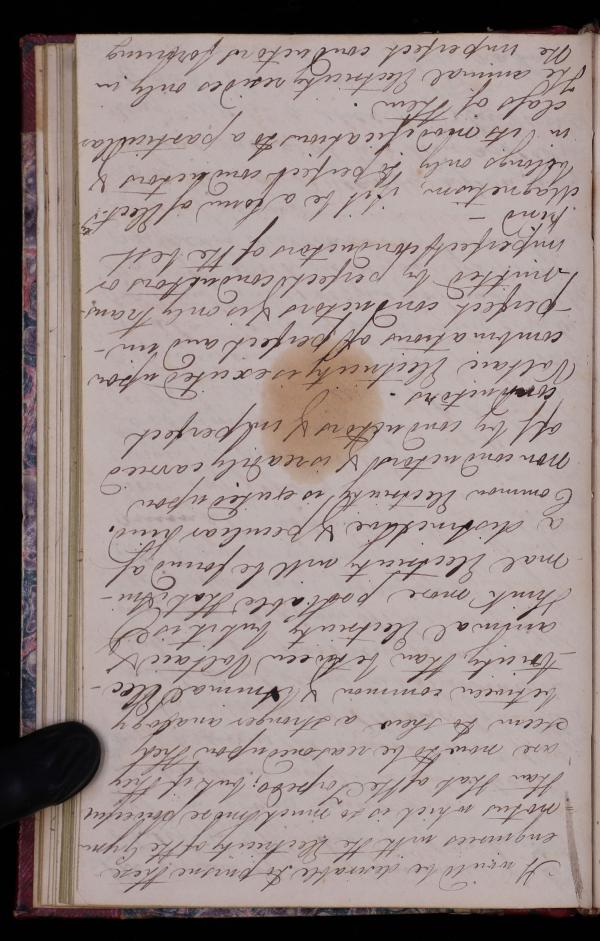 It would be desirable to pursue these
enquiries with the Electricity of the Gym-
-notus which is so much more powerful
than that of the Torpedo; but if they
are now to be reasoned upon they
seem to shew a stronger analogy
between common & Animal Elec-
-tricity than between Voltaic &
animal Electricity but it is I
think more probable that Ani-
-mal Electricity will be found of
a distinctive & peculiar kind.
Common Electricity is excited upon
non conductors & is readily carried
off by conductors & imperfect
conductors.
Voltaic Electricity is excited upon
combinations of perfect and im-
-perfect conductors & is only trans-
-mitted by perfect conductors or
imperfect conductors of the best
kind -
Magnetism if it be a form of Electy.
belongs only to perfect conductors &
in its modifications to a particular
class of them
The animal Electricity resides only in
the imperfect conductors forming